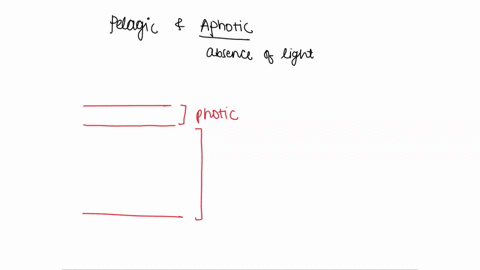 Pelagic & Aphotic
absence of light
photic